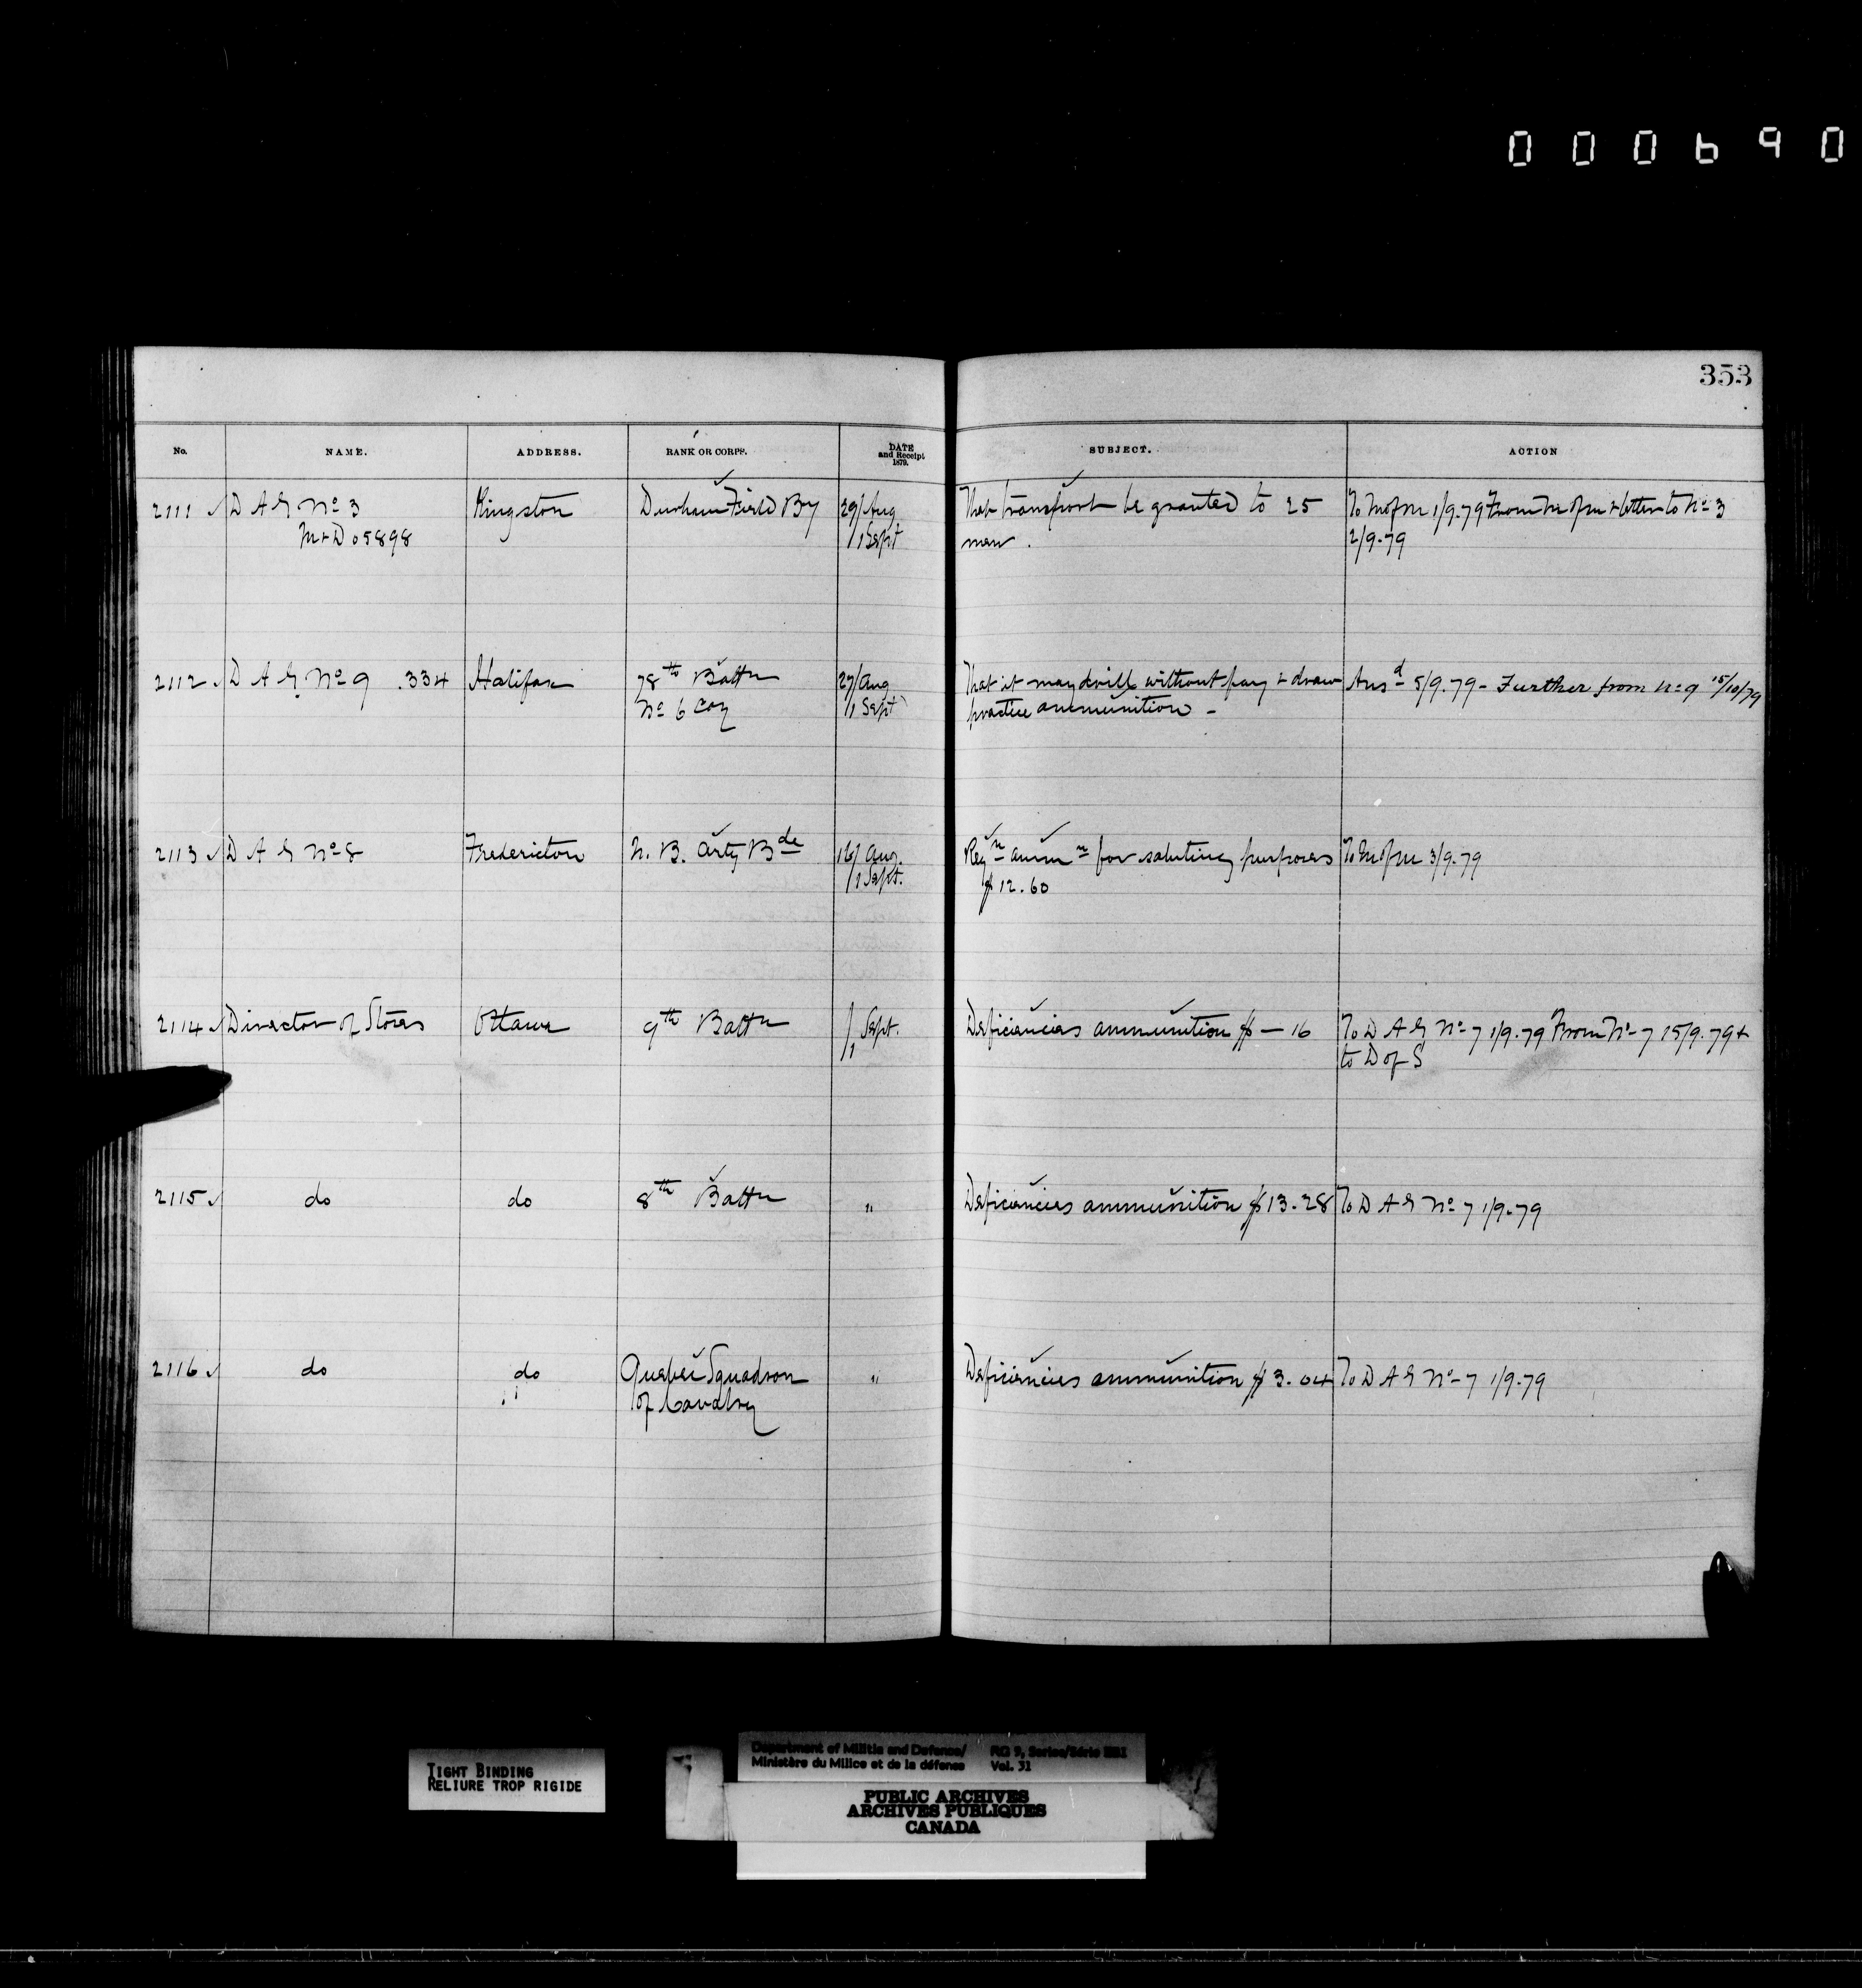 000690
353
No. NAME. ADDRESS. RANK OR CORPS. DATE and Receipt 1879. SUBJECT. ACTION
2111 D A G No 3 Kingston Durham Field By 29/Aug That transport be granted to 25 To M of M 1/9.79 From M of M & letter to No 3
M & D 05898 /1 Sept men. 2/9.79
2112 D A G No 9 .334 Halifax 78th Battn 27/Aug That it may drill without pay & draw Ansd 5/9.79 - Further from No 9 15/10/79
No 6 Coy /1 Sept practice ammunition -
2113 D A G No 8 Fredericton N. B. Arty Bde 16/Aug. Reqn ammn for saluting purposes To M of M 3/9.79
/1 Sept. $12.60
2114 Director of Stores Ottawa 9th Battn /1 Sept. Deficiencies ammunition $ — 16 To D A G No 7 1/9.79 From No 7 15/9.79 &
to D of S
2115 do do 8th Battn " Deficiencies ammunition $13.28 To D A G No 7 1/9.79
2116 do do Quebec Squadron " Deficiencies ammunition $3.04 To D A G No 7 1/9.79
of Cavalry
TIGHT BINDING
RELIURE TROP RIGIDE
Department of Militia and Defence/ RG 9, Series/Série
Ministère du Milice et de la défense Vol. 31
PUBLIC ARCHIVES
ARCHIVES PUBLIQUES
CANADA